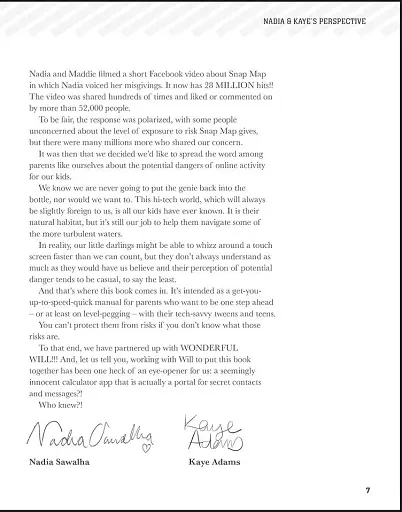 NADIA & KAYE'S PERSPECTIVE
Nadia and Maddie filmed a short Facebook video about Snap Map
in which Nadia voiced her misgivings. It now has 28 MILLION hits!!
The video was shared hundreds of times and liked or commented on
by more than 52,000 people.
To be fair, the response was polarized, with some people
unconcerned about the level of exposure to risk Snap Map gives,
but there were many millions more who shared our concern.
It was then that we decided we'd like to spread the word among
parents like ourselves about the potential dangers of online activity
for our kids.
We know we are never going to put the genie back into the
bottle, nor would we want to. This hi-tech world, which will always
be slightly foreign to us, is all our kids have ever known. It is their
natural habitat, but it's still our job to help them navigate some of
the more turbulent waters.
In reality, our little darlings might be able to whizz around a touch
screen faster than we can count, but they don't always understand as
much as they would have us believe and their perception of potential
danger tends to be casual, to say the least.
And that's where this book comes in. It's intended as a get-you-
up-to-speed-quick manual for parents who want to be one step ahead
– or at least on level-pegging – with their tech-savvy tweens and teens.
You can't protect them from risks if you don't know what those
risks are.
To that end, we have partnered up with WONDERFUL
WILL!!! And, let us tell you, working with Will to put this book
together has been one heck of an eye-opener for us: a seemingly
innocent calculator app that is actually a portal for secret contacts
and messages?!
Who knew?!
Nadia Sawalha
Kaye
Adams
Nadia Sawalha
Kaye Adams
7